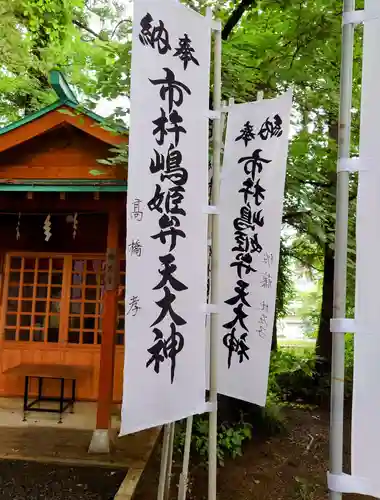 奉納
市杵嶋姫弁天大神
高橋孝
奉納
市杵嶋姫弁天大神